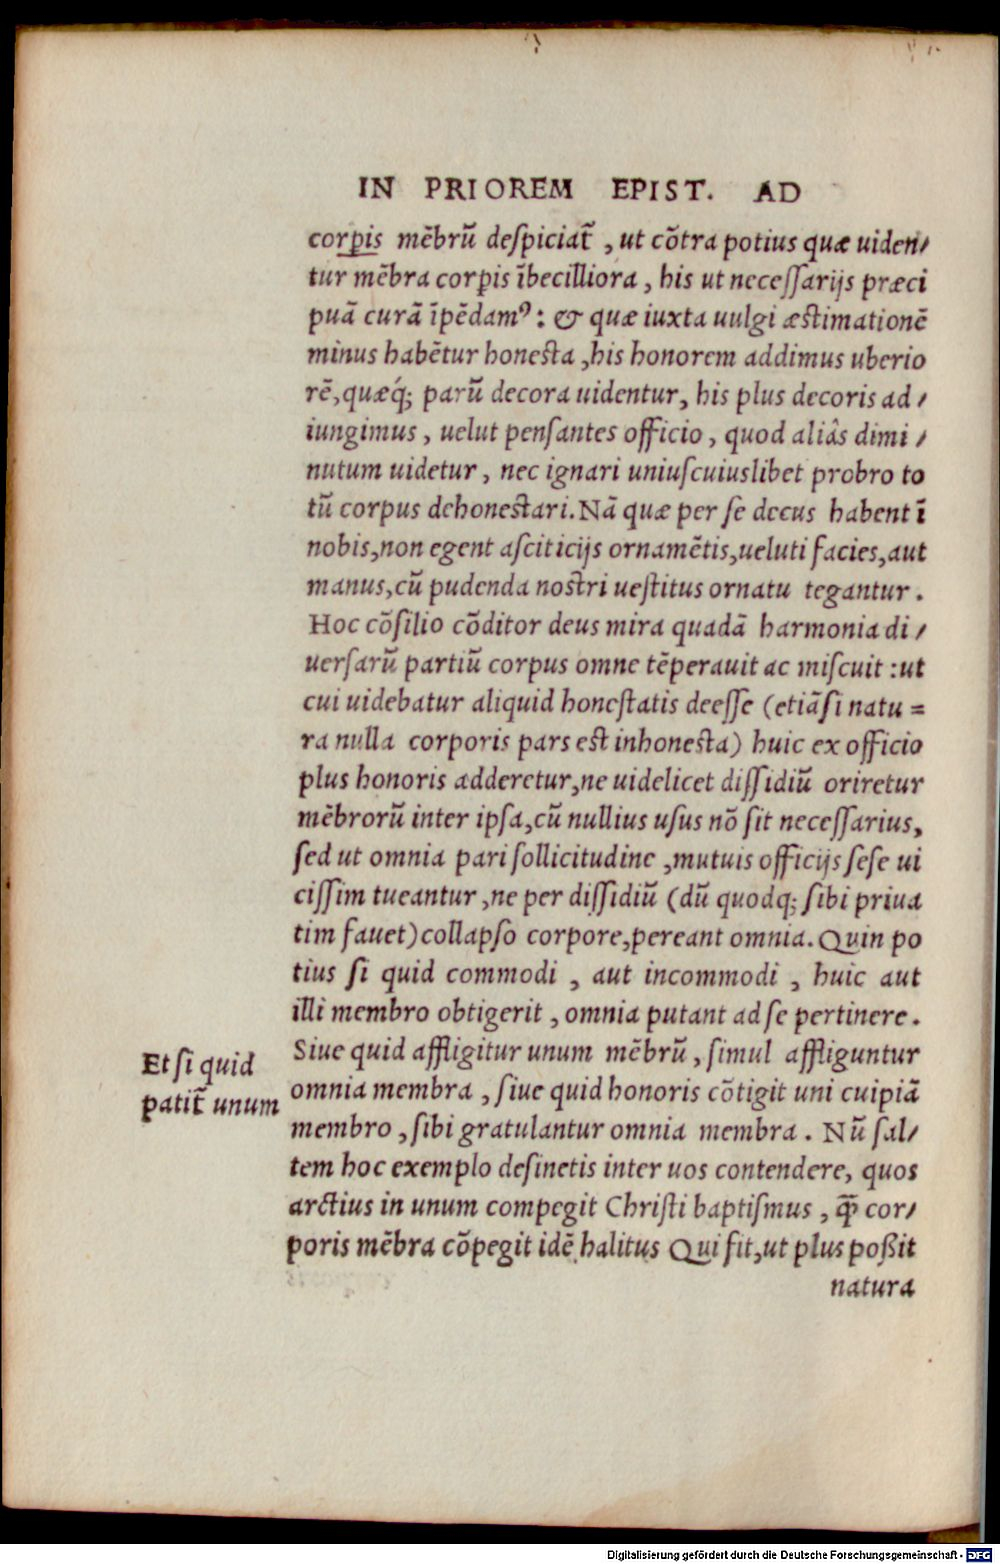 IN PRIOREM EPIST. AD
corꝑis mẽbrũ deſpiciat̃, ut cõtra potius quæ uiden/
tur mẽbra corꝑis ĩbecilliora, his ut neceſſarijs præci
puã curã ĩpẽdamꝰ: & quæ iuxta uulgi æſtimationẽ
minus habẽtur honeſta, his honorem addimus uberio
rẽ, quæq́; parũ decora uidentur, his plus decoris ad/
iungimus, uelut penſantes officio, quod aliâs dimi/
nutum uidetur, nec ignari uniuſcuiuslibet probro to
tũ corpus dehoneſtari. Nã quæ per ſe decus habent ĩ
nobis, non egent aſciticijs ornamẽtis, ueluti facies, aut
manus, cũ pudenda noſtri ueſtitus ornatu tegantur.
Hoc cõſilio cõditor deus mira quadã harmonia di/
uerſarũ partiũ corpus omne tẽperauit ac miſcuit: ut
cui uidebatur aliquid honeſtatis deeſſe (etiãſi natu=
ra nulla corporis pars eſt inhoneſta) huic ex officio
plus honoris adderetur, ne uidelicet diſſidiũ oriretur
mẽbrorũ inter ipſa, cũ nullius uſus nõ ſit neceſſarius,
ſed ut omnia pari ſollicitudine, mutuis officijs ſeſe ui
ciſſim tueantur, ne per diſſidiũ (dũ quodq; ſibi priua
tim fauet) collapſo corpore, pereant omnia. Quin po
tius ſi quid commodi, aut incommodi, huic aut
illi membro obtigerit, omnia putant ad ſe pertinere.
Siue quid affligitur unum mẽbrũ, ſimul affliguntur
omnia membra, ſiue quid honoris cõtigit uni cuipiã
membro, ſibi gratulantur omnia membra. Nũ ſal/
tem hoc exemplo deſinetis inter uos contendere, quos
arctius in unum compegit Chriſti baptiſmus, ꝗ̃ cor/
poris mẽbra cõpegit idẽ halitus Qui fit, ut plus poßit
natura
Et ſi quid
patit̃ unum
Digitalisierung gefördert durch die Deutsche Forschungsgemeinschaft - DFG